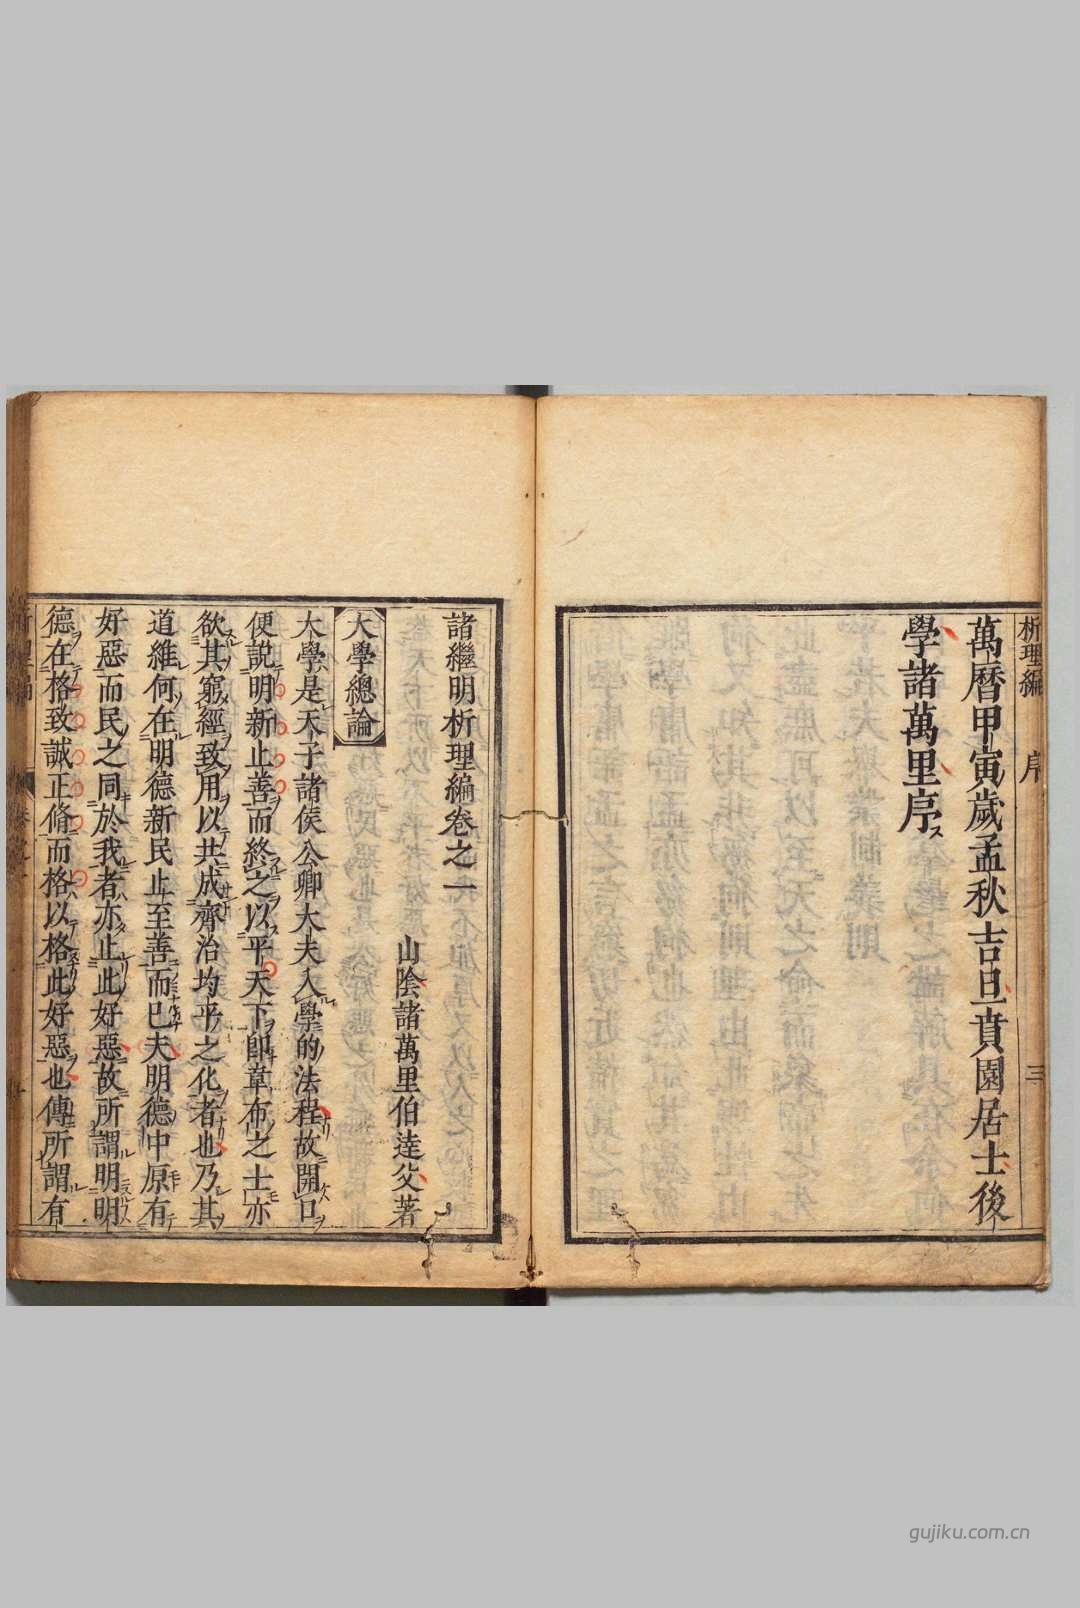 析理編
序
三
萬曆甲寅歲孟秋吉旦賁園居士後
學諸萬里序
諸繼明析理編卷之一
山陰諸萬里伯達父著
大學總論
大學是天子諸侯公卿大夫入學的法程故開口
便說明新止善而終之以平天下即草布之士亦
欲其窮經致用以共成齊治均平之化者也乃其
道維何在明德新民止至善而已夫明德中原有
好惡而民之同於我者亦止此好惡故所謂明明
德在格致誠正脩而格以格此好惡也傳所謂有
gujiku.com.cn